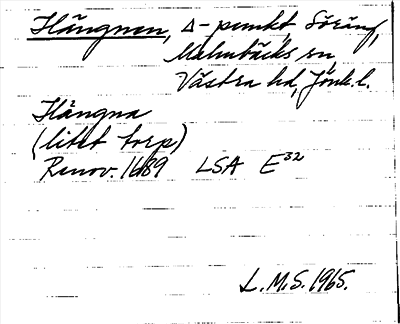 Hängnen, Δ-punkt, Söräng,
Malmbäcks sn
Västra hd, Jönk. l.
Hängna
(litet torp)
Renov. 1689 LSA E³²
L.M.S. 1965.